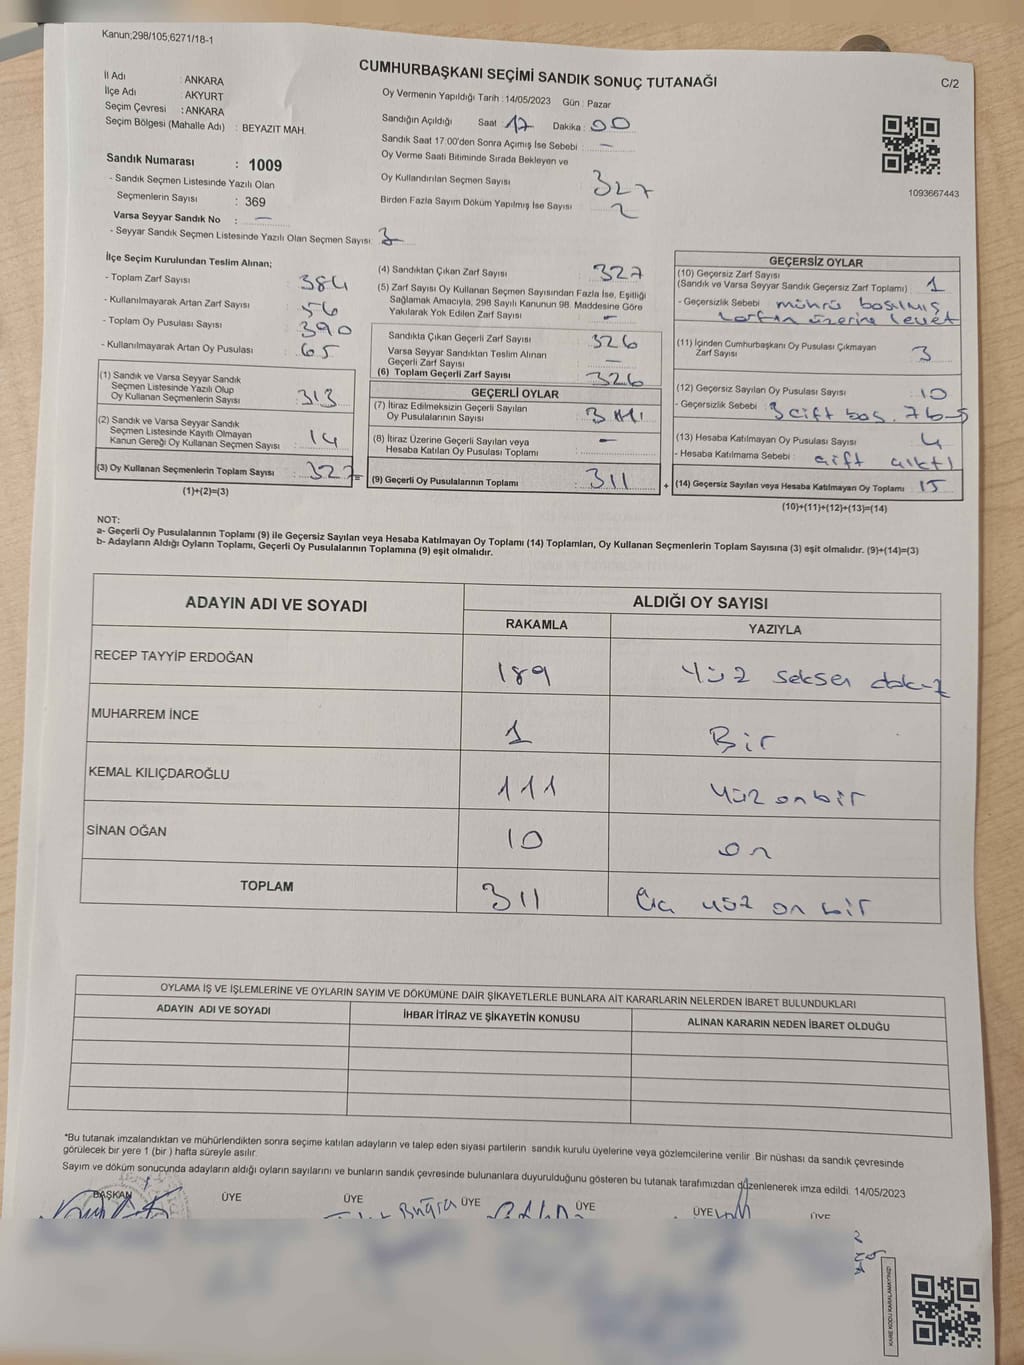 Kanun;298/105;6271/18-1
CUMHURBAŞKANI SEÇİMİ SANDIK SONUÇ TUTANAĞI
C/2
İl Adı : ANKARA
İlçe Adı : AKYURT
Seçim Çevresi : ANKARA
Seçim Bölgesi (Mahalle Adı) : BEYAZIT MAH.
Oy Vermenin Yapıldığı Tarih : 14/05/2023 Gün : Pazar
Sandığın Açıldığı Saat : 17 Dakika : 00
Sandık Saat 17:00'den Sonra Açımış İse Sebebi : -
Oy Verme Saati Bitiminde Sırada Bekleyen ve
Oy Kullandırılan Seçmen Sayısı 327
Birden Fazla Sayım Döküm Yapılmış İse Sayısı 2
1093667443
Sandık Numarası : 1009
- Sandık Seçmen Listesinde Yazılı Olan
Seçmenlerin Sayısı : 369
Varsa Seyyar Sandık No : -
- Seyyar Sandık Seçmen Listesinde Yazılı Olan Seçmen Sayısı:
İlçe Seçim Kurulundan Teslim Alınan;
- Toplam Zarf Sayısı : 384
- Kullanılmayarak Artan Zarf Sayısı : 56
- Toplam Oy Pusulası Sayısı : 390
- Kullanılmayarak Artan Oy Pusulası : 65
(1) Sandık ve Varsa Seyyar Sandık
Seçmen Listesinde Yazılı Olup
Oy Kullanan Seçmenlerin Sayısı : 313
(2) Sandık ve Varsa Seyyar Sandık
Seçmen Listesinde Kayıtlı Olmayan
Kanun Gereği Oy Kullanan Seçmen Sayısı : 14
(3) Oy Kullanan Seçmenlerin Toplam Sayısı : 327 =
(1)+(2)=(3)
(4) Sandıktan Çıkan Zarf Sayısı : 327
(5) Zarf Sayısı Oy Kullanan Seçmen Sayısından Fazla İse, Eşitliği
Sağlamak Amacıyla, 298 Sayılı Kanunun 98. Maddesine Göre
Yakılarak Yok Edilen Zarf Sayısı : -
Sandıkta Çıkan Geçerli Zarf Sayısı : 326
Varsa Seyyar Sandıktan Teslim Alınan
Geçerli Zarf Sayısı : -
(6) Toplam Geçerli Zarf Sayısı : 326
GEÇERLİ OYLAR
(7) İtiraz Edilmeksizin Geçerli Sayılan
Oy Pusulalarının Sayısı :
(8) İtiraz Üzerine Geçerli Sayılan veya
Hesaba Katılan Oy Pusulası Toplamı : -
(9) Geçerli Oy Pusulalarının Toplamı : 311 +
GEÇERSİZ OYLAR
(10) Geçersiz Zarf Sayısı
(Sandık ve Varsa Seyyar Sandık Geçersiz Zarf Toplamı) : 1
- Geçersizlik Sebebi : mührü basılmış
zarfın üzerine
(11) İçinden Cumhurbaşkanı Oy Pusulası Çıkmayan
Zarf Sayısı : 3
(12) Geçersiz Sayılan Oy Pusulası Sayısı : 10
- Geçersizlik Sebebi : 3 çift bas. 7
(13) Hesaba Katılmayan Oy Pusulası Sayısı :
- Hesaba Katılmama Sebebi : çift çıktı
(14) Geçersiz Sayılan veya Hesaba Katılmayan Oy Toplamı : 15
(10)+(11)+(12)+(13)=(14)
NOT:
a- Geçerli Oy Pusulalarının Toplamı (9) ile Geçersiz Sayılan veya Hesaba Katılmayan Oy Toplamı (14) Toplamları, Oy Kullanan Seçmenlerin Toplam Sayısına (3) eşit olmalıdır. (9)+(14)=(3)
b- Adayların Aldığı Oyların Toplamı, Geçerli Oy Pusulalarının Toplamına (9) eşit olmalıdır.
ADAYIN ADI VE SOYADI
ALDIĞI OY SAYISI
RAKAMLA YAZIYLA
RECEP TAYYİP ERDOĞAN 189 Yüz seksen dokuz
MUHARREM İNCE 1 Bir
KEMAL KILIÇDAROĞLU 111 Yüz on bir
SİNAN OĞAN 10 on
TOPLAM 311 Üç yüz on bir
OYLAMA İŞ VE İŞLEMLERİNE VE OYLARIN SAYIM VE DÖKÜMÜNE DAİR ŞİKAYETLERLE BUNLARA AİT KARARLARIN NELERDEN İBARET BULUNDUKLARI
ADAYIN ADI VE SOYADI İHBAR İTİRAZ VE ŞİKAYETİN KONUSU ALINAN KARARIN NEDEN İBARET OLDUĞU
*Bu tutanak imzalandıktan ve mühürlendikten sonra seçime katılan adayların ve talep eden siyasi partilerin sandık kurulu üyelerine veya gözlemcilerine verilir. Bir nüshası da sandık çevresinde
görülecek bir yere 1 (bir ) hafta süreyle asılır.
Sayım ve döküm sonucunda adayların aldığı oyların sayılarını ve bunların sandık çevresinde bulunanlara duyurulduğunu gösteren bu tutanak tarafımızdan düzenlenerek imza edildi. 14/05/2023
BAŞKAN ÜYE ÜYE ÜYE ÜYE ÜYE ÜYE
Buğra
KARE KODU KARALAMAYINIZ!